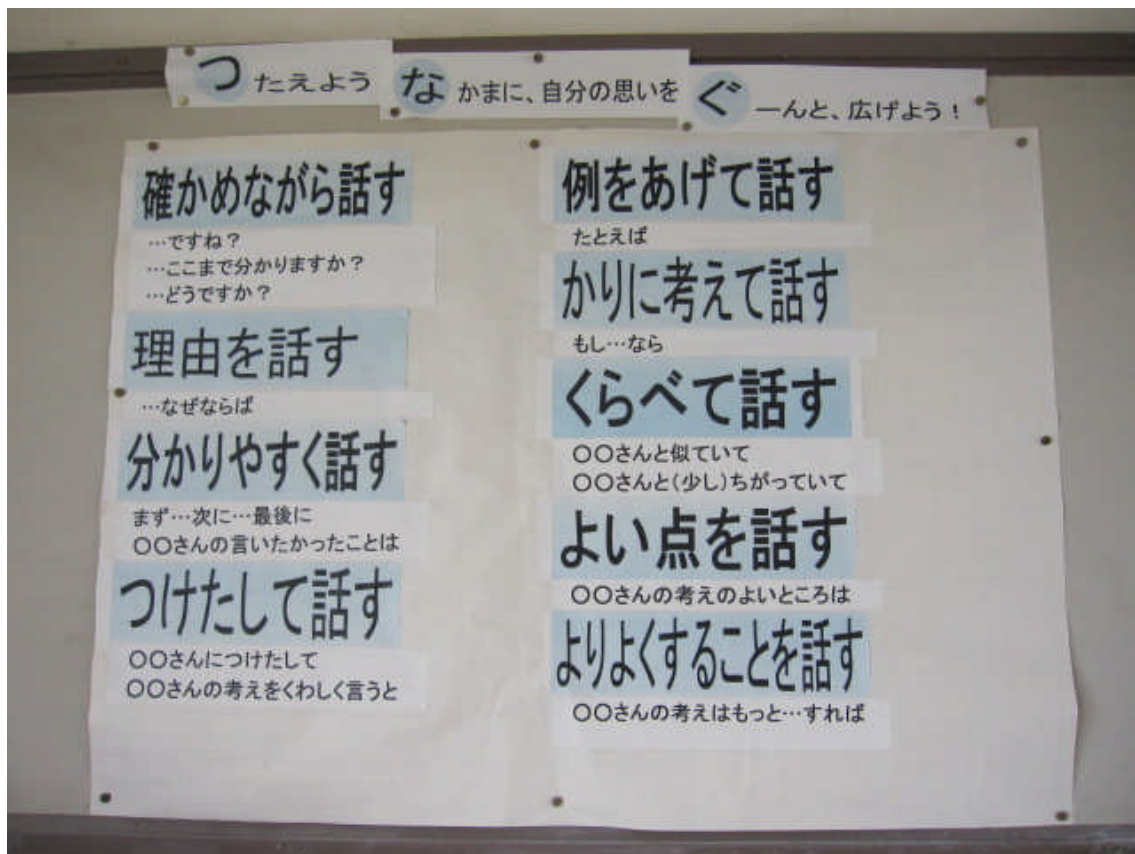 つたえよう
なかまに、自分の思いを
ぐーんと、広げよう!
確かめながら話す
…ですね?
…ここまで分かりますか?
…どうですか?
理由を話す
…なぜならば
分かりやすく話す
まず…次に…最後に
〇〇さんの言いたかったことは
つけたして話す
〇〇さんにつけたして
〇〇さんの考えをくわしく言うと
例をあげて話す
たとえば
かりに考えて話す
もし…なら
くらべて話す
〇〇さんと似ていて
〇〇さんと(少し)ちがっていて
よい点を話す
〇〇さんの考えのよいところは
よりよくすることを話す
〇〇さんの考えはもっと…すれば